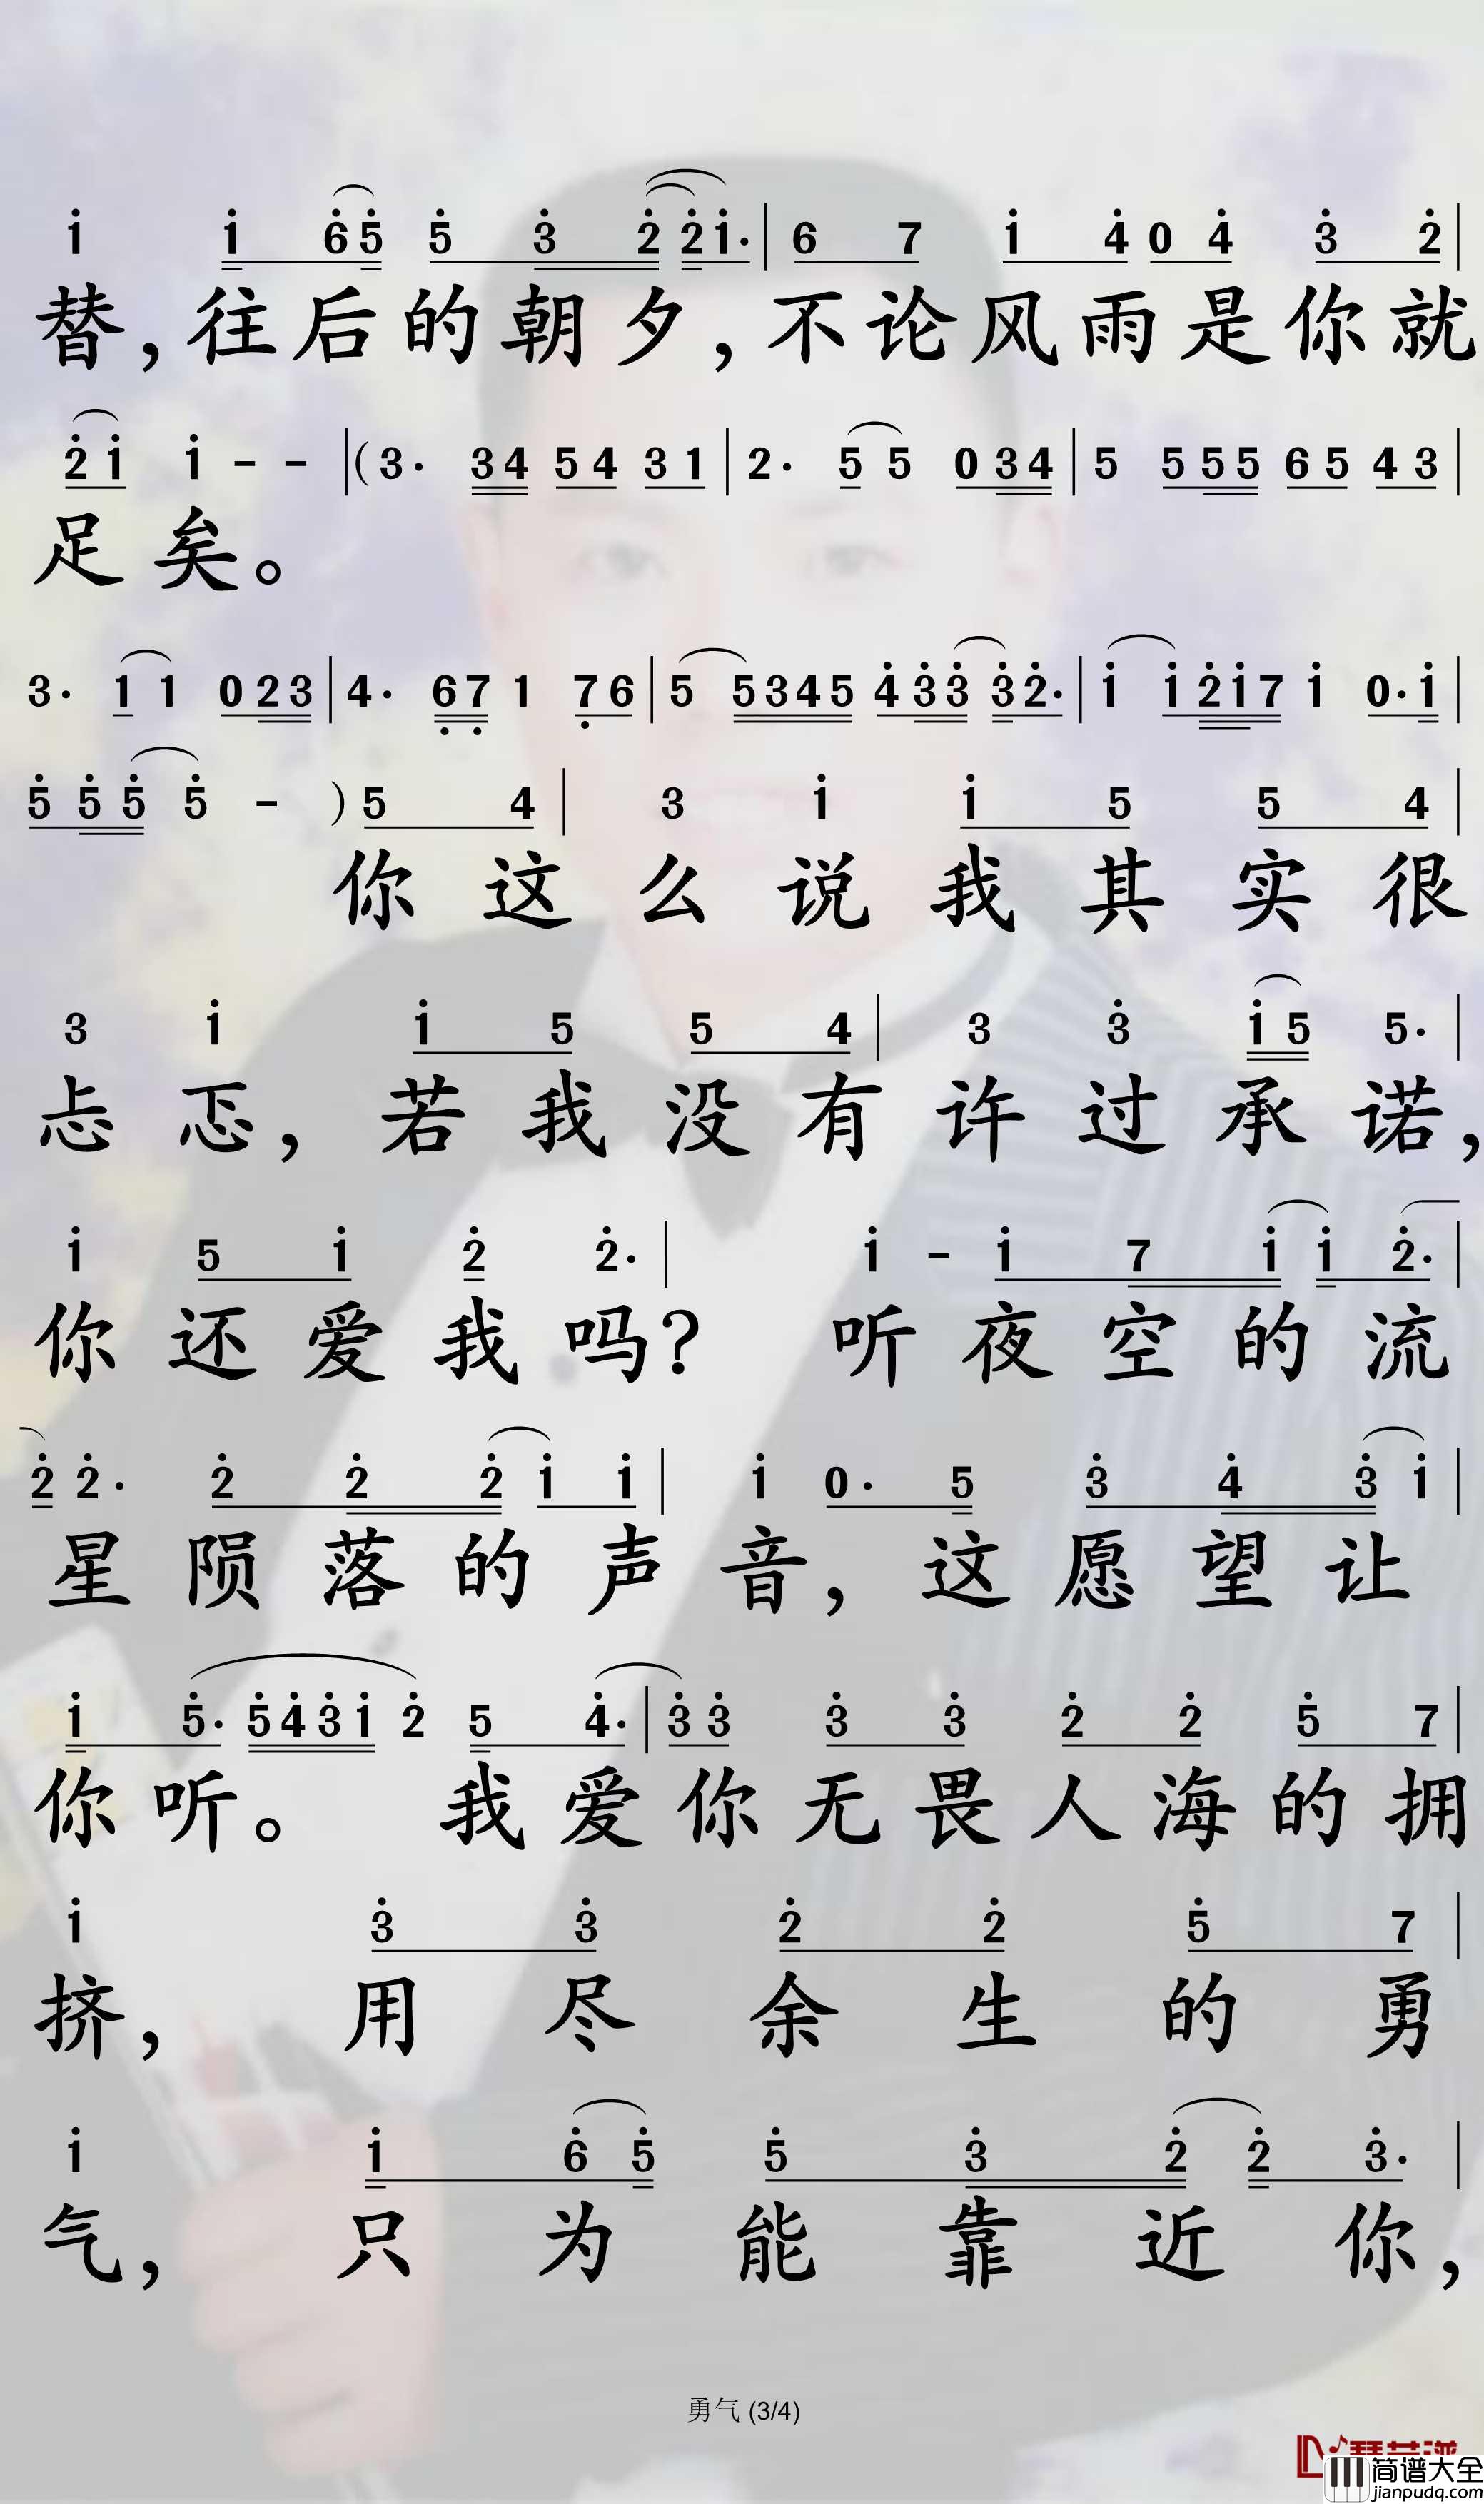 1 1 6 5 5 3 2 2 1· | 6 7 1 4 0 4 3 2 |
替，往后的朝夕，不论风雨是你就
2 1 1 - - | (3· 3 4 5 4 3 1 | 2· 5 5 0 3 4 | 5 5 5 5 6 5 4 3 |
足矣。
3· 1 1 0 2 3 | 4· 6 7 1 7 6 | 5 5 3 4 5 4 3 3 3 2· | 1 1 2 1 7 1 0· 1 |
5 5 5 5 - ) 5 4 | 3 1 1 5 5 4 |
你这么说我其实很
3 1 1 5 5 4 | 3 3 1 5 5· |
忐忑，若我没有许过承诺，
1 5 1 2 2· | 1 - 1 7 1 1 2· |
你还爱我吗？ 听夜空的流
2 2· 2 2 2 1 1 | 1 0· 5 3 4 3 1 |
星陨落的声音，这愿望让
1 5· 5 4 3 1 2 5 4· | 3 3 3 3 2 2 5 7 |
你听。 我爱你无畏人海的拥
1 3 3 2 2 5 7 |
挤，用尽余生的勇
1 1 6 5 5 3 2 2 3· |
气，只为能靠近你，
勇气 (3/4)
简谱大全
jianpudq.com